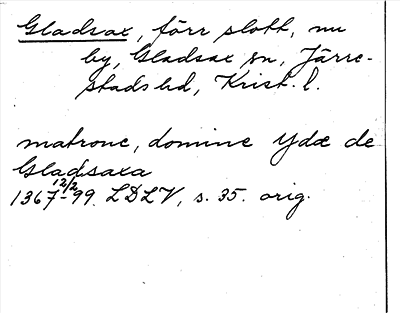 Gladsax, förr slott, nu
by, Gladsax sn, Järre-
stads hd, Krist. l.
matrone, domine Ydæ de
Gladsaxa
1367 12/2 -99. LDLV, s. 35. orig.